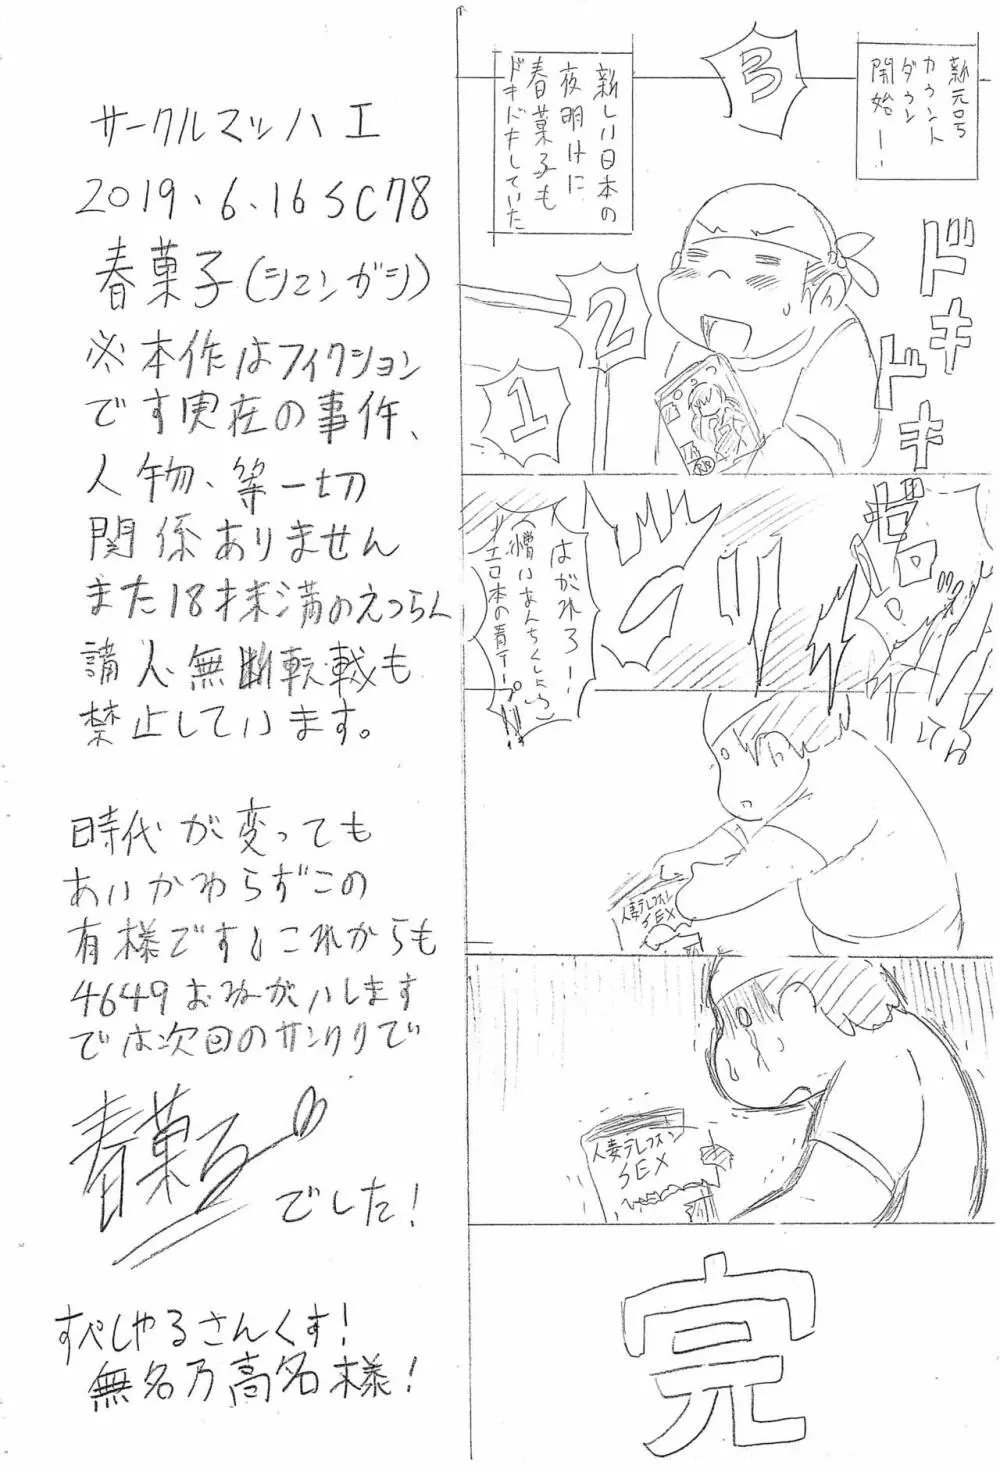 新元号
カウント
ダウン
開始ー!
3
新しい日本の
夜明けに
春菓子も
ドキドキしていた
2
1
ドキドキ
はがれろー!
(憎いあんちくしょう)
エロ本の青テープ!!
人妻テレフォン
SEX
人妻テレフォン
SEX
完
サークルマッハエ
2019.6.16 SC78
春菓子(シュンガシ)
※本作はフィクション
です実在の事件、
人物、等一切
関係ありません
また18才未満のえつらん
講入・無断転載も
禁止しています。
時代が変っても
あいかわらずこの
有様です。これからも
4649おねがいします
では次回のサンクリで
春菓子
でした!
すぺしゃるさんくす!
無名乃高名様!